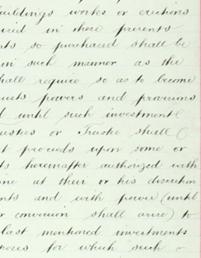 buildings works or erections
in these presents
so purchased shall be
in such manner as the
shall require so as to become
powers and provisoes
until such investment
or Trustee shall
proceeds upon some or
hereinafter authorized with
at their or his discretion
and with power (until
or conversion shall arise) to
last mentioned investments
for which such